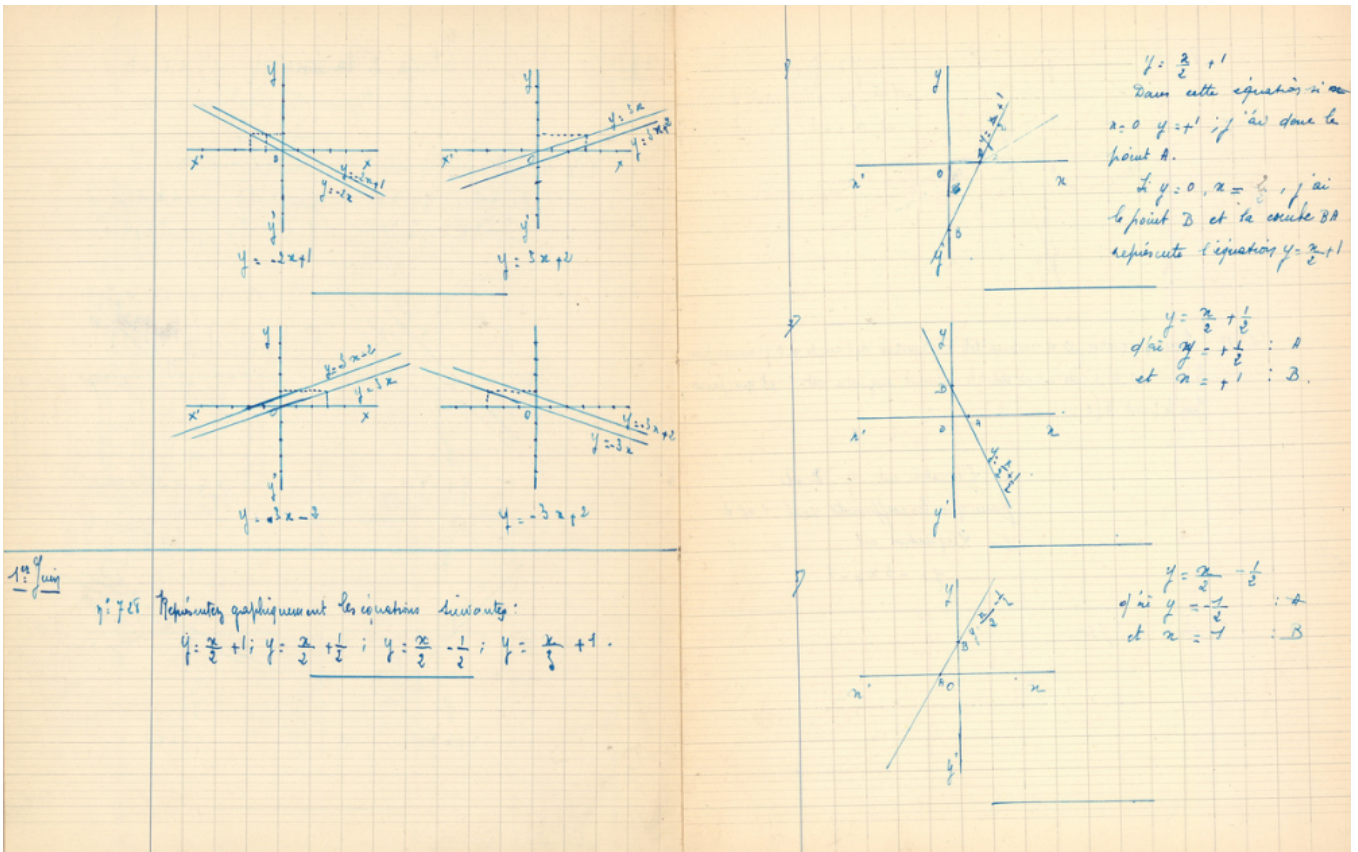 y
y = -2x+1
y = -2x
x'
o
x
y'
y = -2x+1
y
y = 3x
y = 3x+2
x'
o
x
y'
y = 3x+2
y
y = 3x-2
y = 3x
x'
o
x
y'
y = 3x-2
y = -3x+2
y = -3x
o
y = -3x+2
1er Juin
n° 728 Représentez graphiquement les équations suivantes :
y = x/2 + 1 ; y = x/2 + 1/2 ; y = x/2 - 1/2 ; y = x/3 + 1 .
y
y = x/2 + 1
x'
o
x
B
y'
y = x/2 + 1
Dans cette équation si
x=0 y=+1 ; j'ai donc le
point A.
Si y=0, x = , j'ai
le point B et la courbe BA
représente l'équation y = x/2 + 1
2/
y
B
x'
o
A
x
y = x/2 + 1/2
y'
y = x/2 + 1/2
d'où y = + 1/2 : A
et x = +1 : B.
3/
y
y = x/2 - 1/2
B
x'
A
o
x
y'
y = x/2 - 1/2
d'où y = -1/2 : A
et x = 1 : B